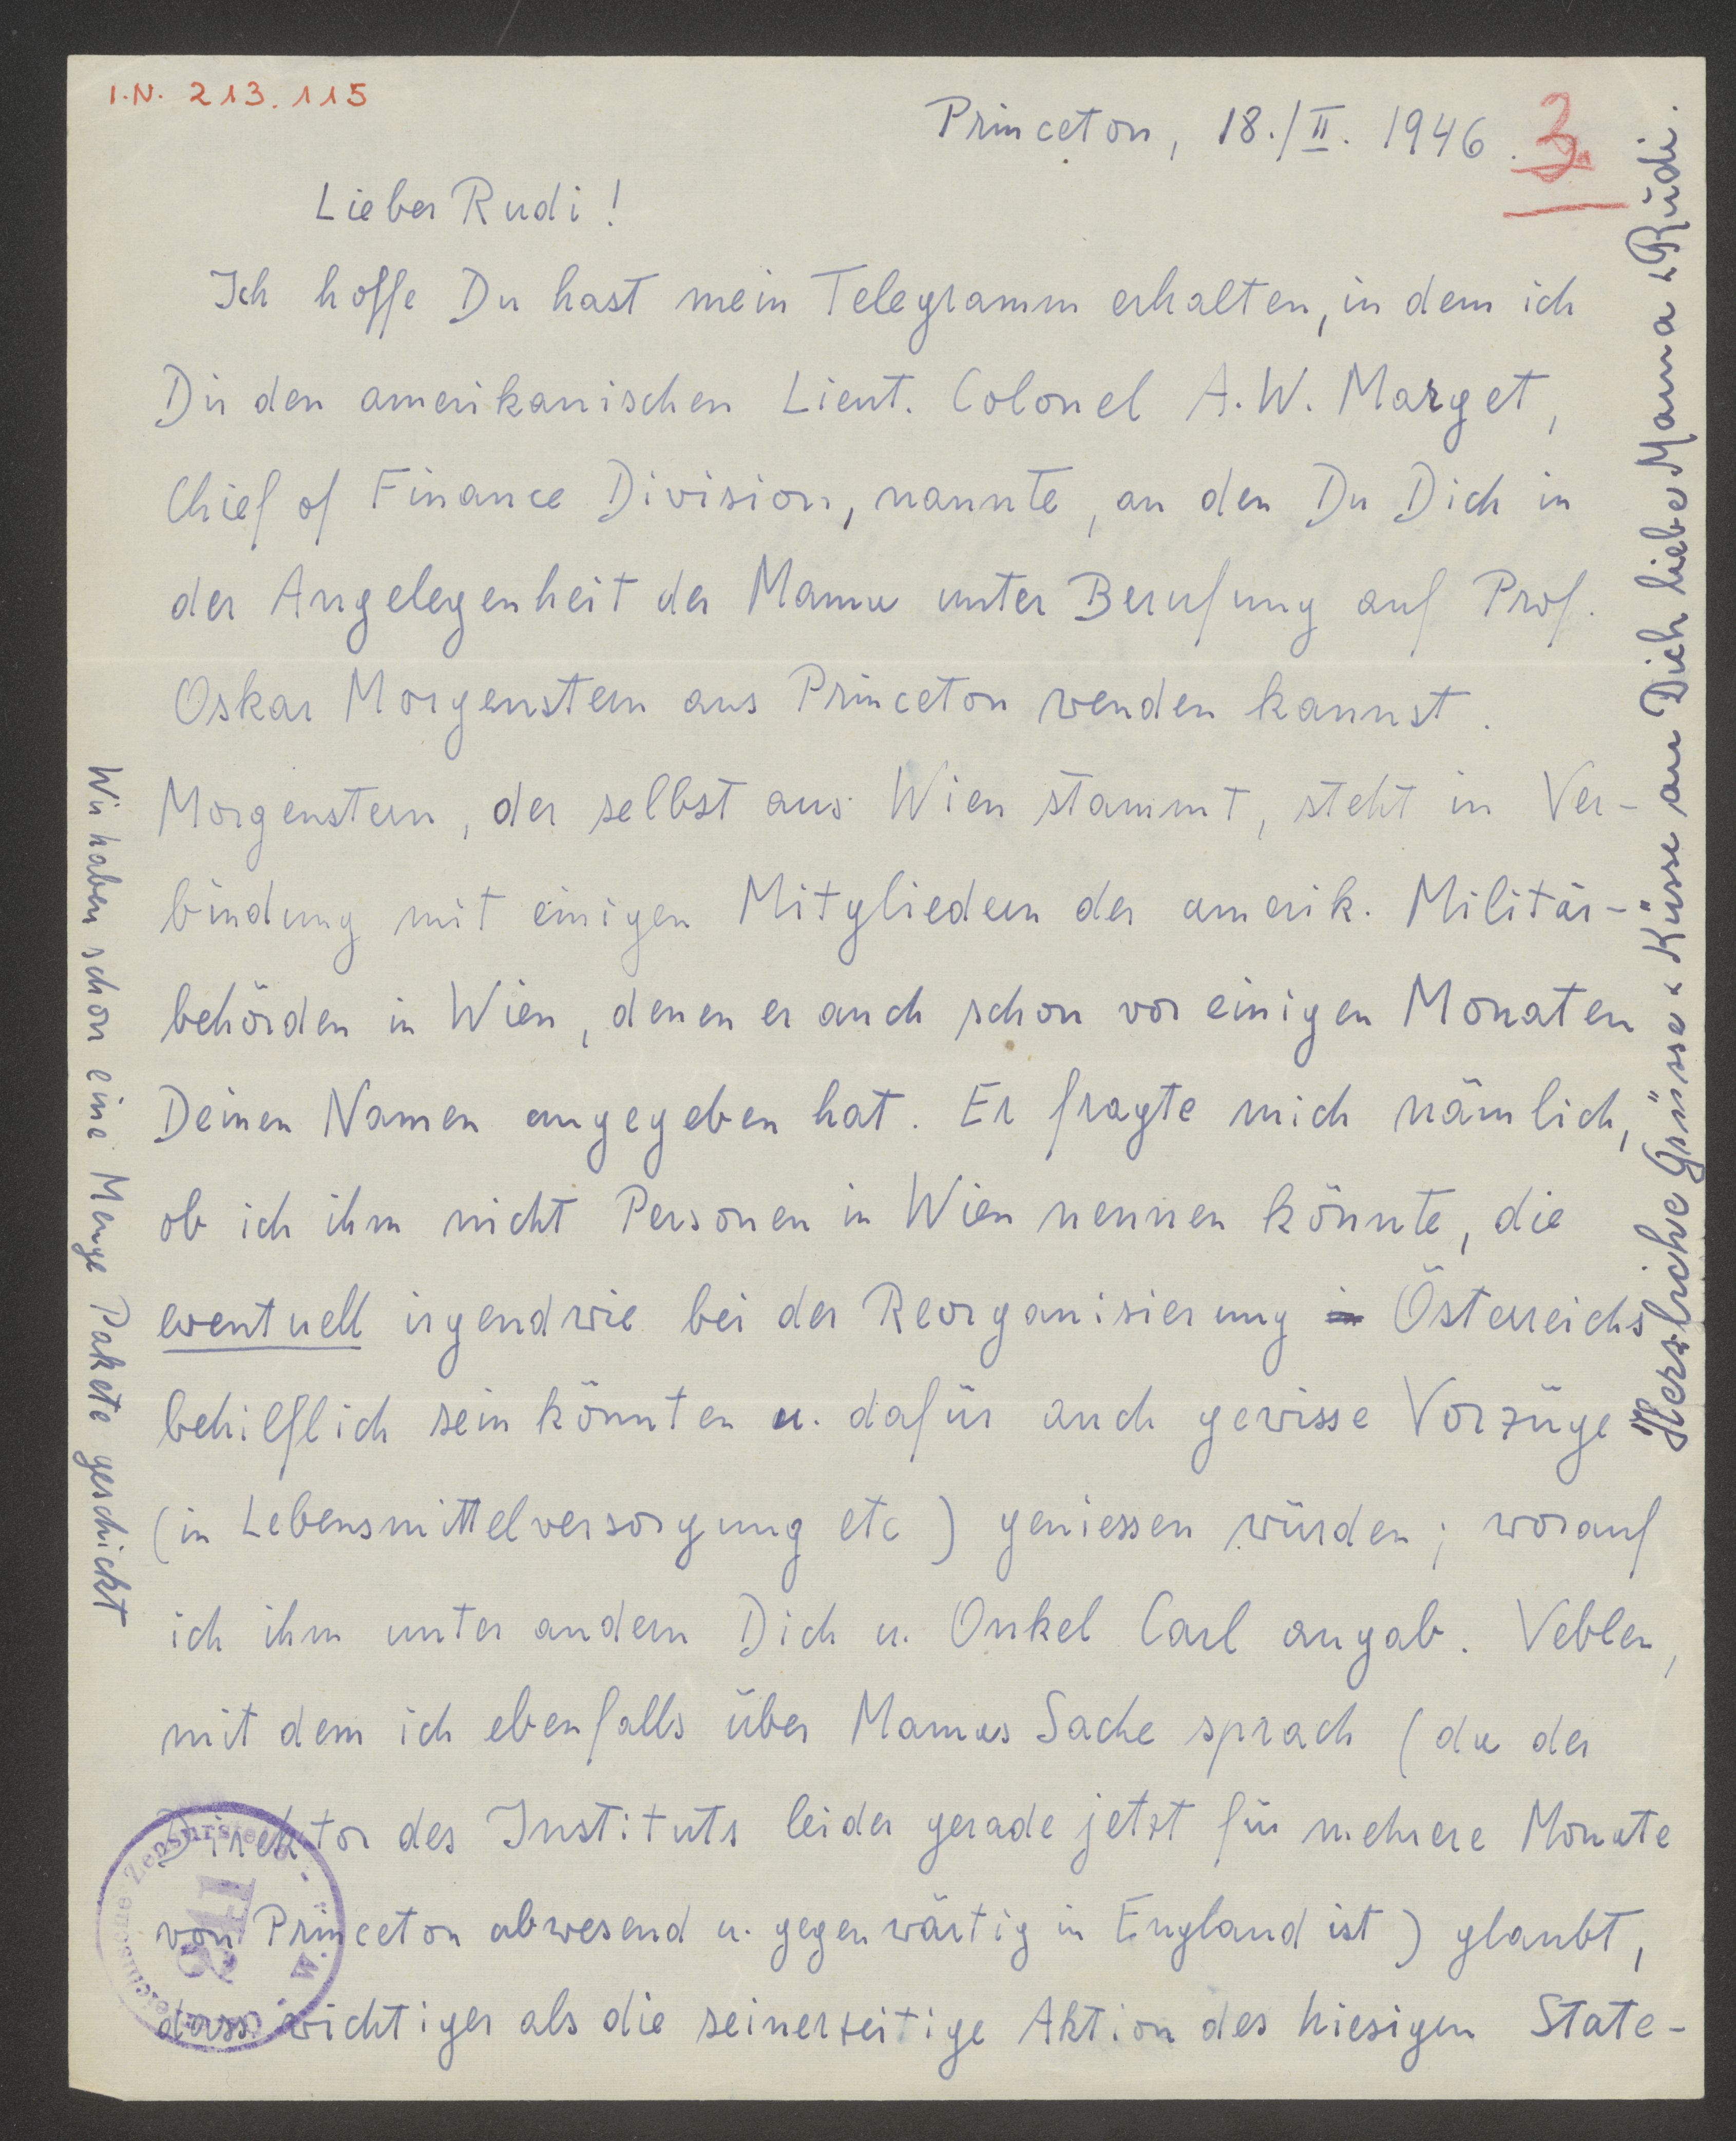 I.N. 213.115
Princeton, 18./II. 1946.
3.
Lieber Rudi!
Ich hoffe Du hast mein Telegramm erhalten, in dem ich
Dir den amerikanischen Lieut. Colonel A.W. Marget,
Chief of Finance Division, nannte, an den Du Dich in
der Angelegenheit der Mama unter Berufung auf Prof.
Oskar Morgenstern aus Princeton wenden kannst.
Morgenstern, der selbst aus Wien stammt, steht in Ver-
bindung mit einigen Mitgliedern der amerik. Militär-
behörden in Wien, denen er auch schon vor einigen Monaten
Deinen Namen angegeben hat. Er fragte mich nämlich,
ob ich ihm nicht Personen in Wien nennen könnte, die
eventuell irgendwie bei der Reorganisierung in Österreichs
behilflich sein könnten u. dafür auch gewisse Vorzüge
(in Lebensmittelversorgung etc) geniessen würden; worauf
ich ihm unter andern Dich u. Onkel Carl angab. Veblen,
mit dem ich ebenfalls über Mamas Sache sprach (da der
Direktor des Instituts leider gerade jetzt für mehrere Monate
von Princeton abwesend u. gegenwärtig in England ist) glaubt,
dass wichtiger als die seinerzeitige Aktion des hiesigen State-
Wir haben schon eine Menge Pakete geschickt
Herzliche Grüsse u. Küsse an Dich liebe Mama u. Rudi.
Zensurstelle
241